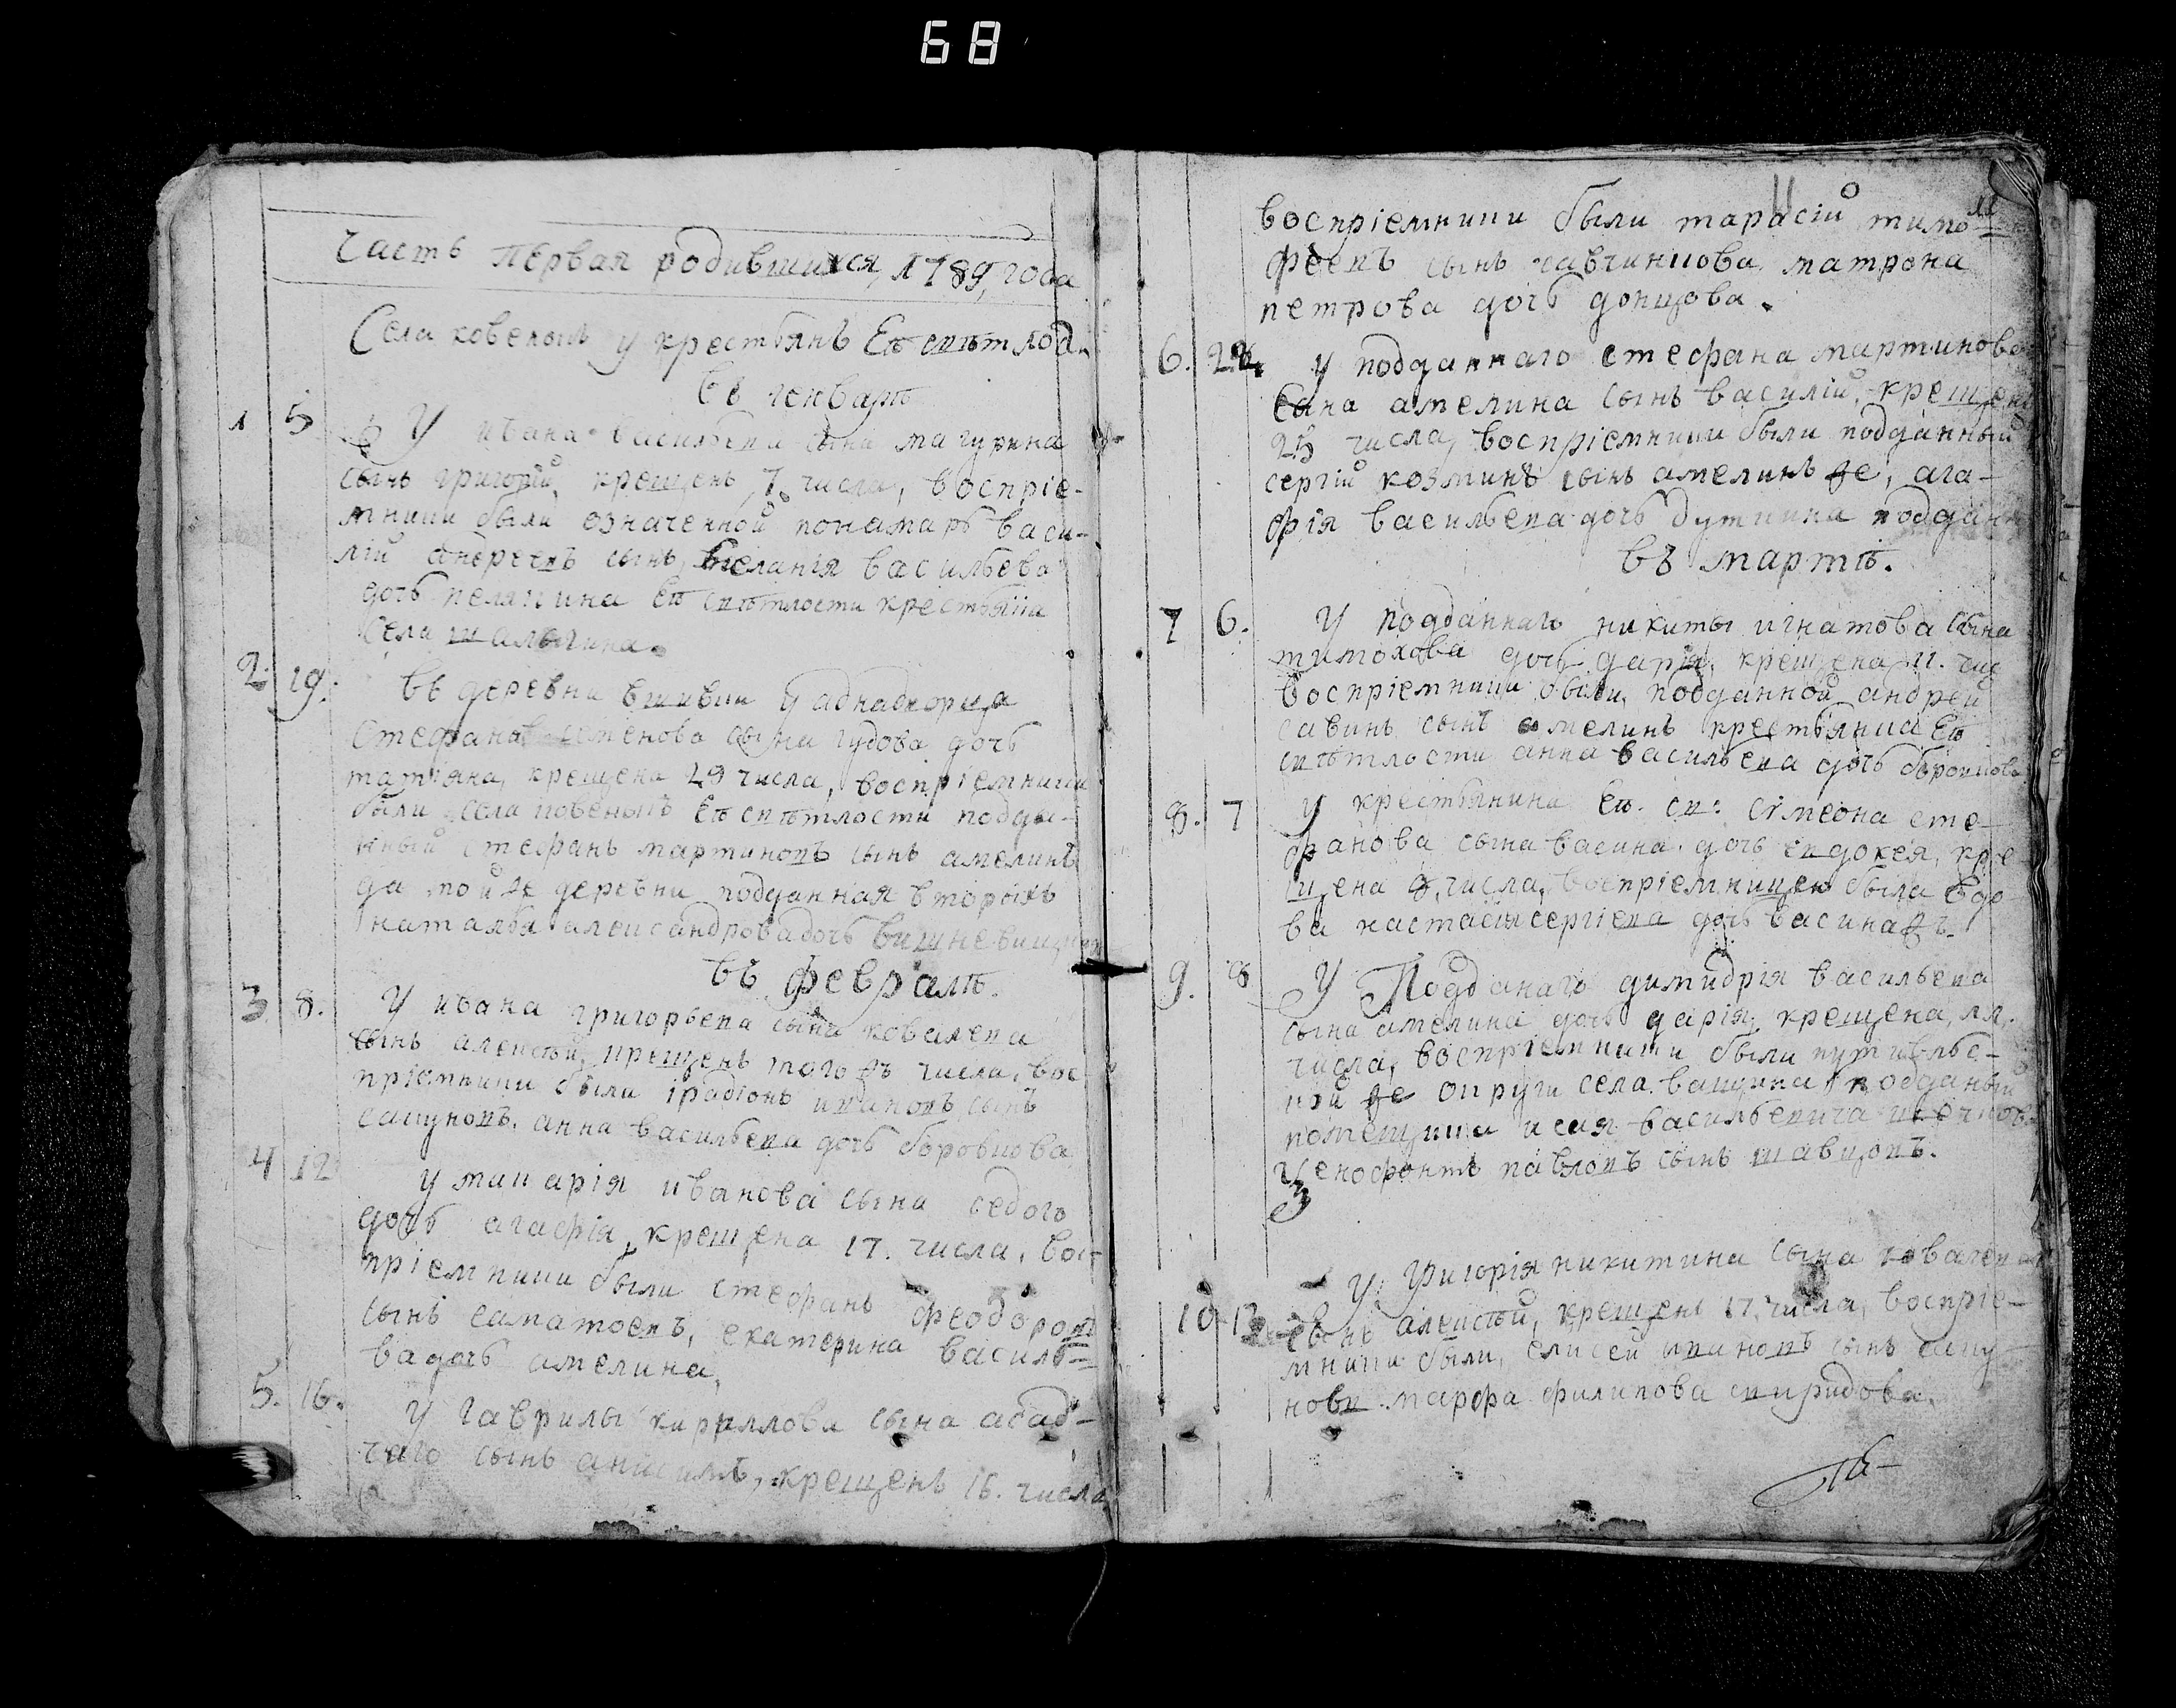 68
часть первая родившихся, 1789, года
Села ковенькъ у крестьянъ Еѣ свѣтлод.
въ генварѣ
1 5 У ивана васильева сына мачурина
сынъ григорій, крещенъ 7, числа, воспріе-
мники были означенной понамарь васи-
лій андреевъ сынъ, васильева
дочь пелянина Еѣ свѣтлости крестьянка
села шалыгина.
2. 19. въ деревни вшивки у аднадворца
стефана семенова сына гудова дочь
татіяна, крещена 29 числа, воспріемники
были села ковенькъ Еѣ свѣтлости подда-
нный стефанъ мартиновъ сынъ амелинъ
да той же деревни подданная
наталья александрова дочь
въ февралѣ.
3 8. У ивана григорьева сына ковалева
сынъ алексѣй, крещенъ того жъ числа, вос-
пріемники были ірадіонъ ивановъ сынъ
сапуновъ, анна васильева дочь боровкова
4 12 У макарія иванова сына седого
дочь агафія, крещена 17. числа, вос-
пріемники были стефанъ феодоровъ
сынъ саматоевъ, екатерина василь-
ва дочь амелина,
5. 16. У гаврилы кириллова сына абад-
чаго сынъ анисимъ, крещенъ 16. числа
11
воспріемники были тарасій тимо
феевъ сынъ матрона
петрова дочь донцова.
6. У подданнаго стефана мартинова
сына амелина сынъ василій, крещенъ
25 числа, воспріемники были подданный
сергій козминъ сынъ амелинъ же, ага-
фія васильева дочь дуткина поддан
въ мартѣ.
7 6. У подданнаго никиты игнатова сына
тимохова дочь дарія, крещена 11. чис
воспріемники были, подданной андрей
савинъ сынъ амелинъ крестьянка Еѣ
свѣтлости анна васильева дочь боровкова
8. 7 У крестьянина Еѣ. св: сімеона сте-
фанова сына васина дочь евдокея, кре
щена 8, числа, воспріемницею была вдо
ва настасія сергіева дочь васина жъ.
9. 8 У Подданаго димидрія васильева
сына амелина дочь дарія, крещена, 11.
числа, воспріемники были путивльс-
кой же округи села ващина подданый
помещика исая васильевича
ѯенофонтъ павловъ сынъ шавцовъ.
10 13 У григорія никитина сына ковалева
сынъ алексѣй, крещенъ 17. числа, воспріе-
мники были, елисей ивановъ сынъ сапу
новъ марфа филипова спиридова.